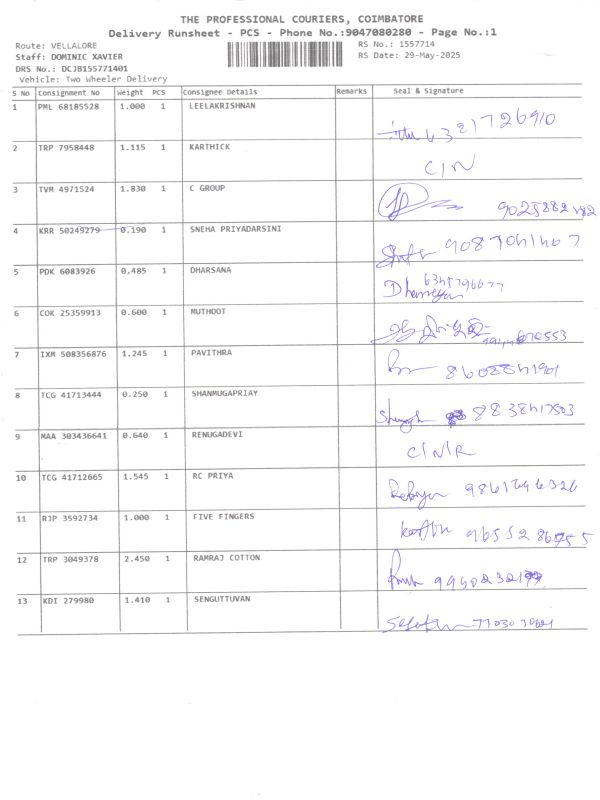 THE PROFESSIONAL COURIERS, COIMBATORE
Delivery Runsheet - PCS - Phone No.:9047080280 - Page No.:1
Route: VELLALORE
Staff: DOMINIC XAVIER
DRS No.: DCJB155771401
Vehicle: Two Wheeler Delivery
RS No.: 1557714
RS Date: 29-May-2025
S No Consignment No Weight PCS Consignee Details Remarks Seal & Signature
1 PML 68185528 1.000 1 LEELAKRISHNAN
2 TRP 7958448 1.115 1 KARTHICK C/N
3 TVM 4971524 1.830 1 C GROUP
4 KRR 50249279 0.190 1 SNEHA PRIYADARSINI
5 PDK 6083926 0.485 1 DHARSANA
6 COK 25359913 0.600 1 MUTHOOT
7 IXM 508356876 1.245 1 PAVITHRA
8 TCG 41713444 0.250 1 SHANMUGAPRIAY
9 MAA 303436641 0.640 1 RENUGADEVI C/N/R
10 TCG 41712665 1.545 1 RC PRIYA
11 RJP 3592734 1.000 1 FIVE FINGERS
12 TRP 3049378 2.450 1 RAMRAJ COTTON
13 KDI 279980 1.410 1 SENGUTTUVAN